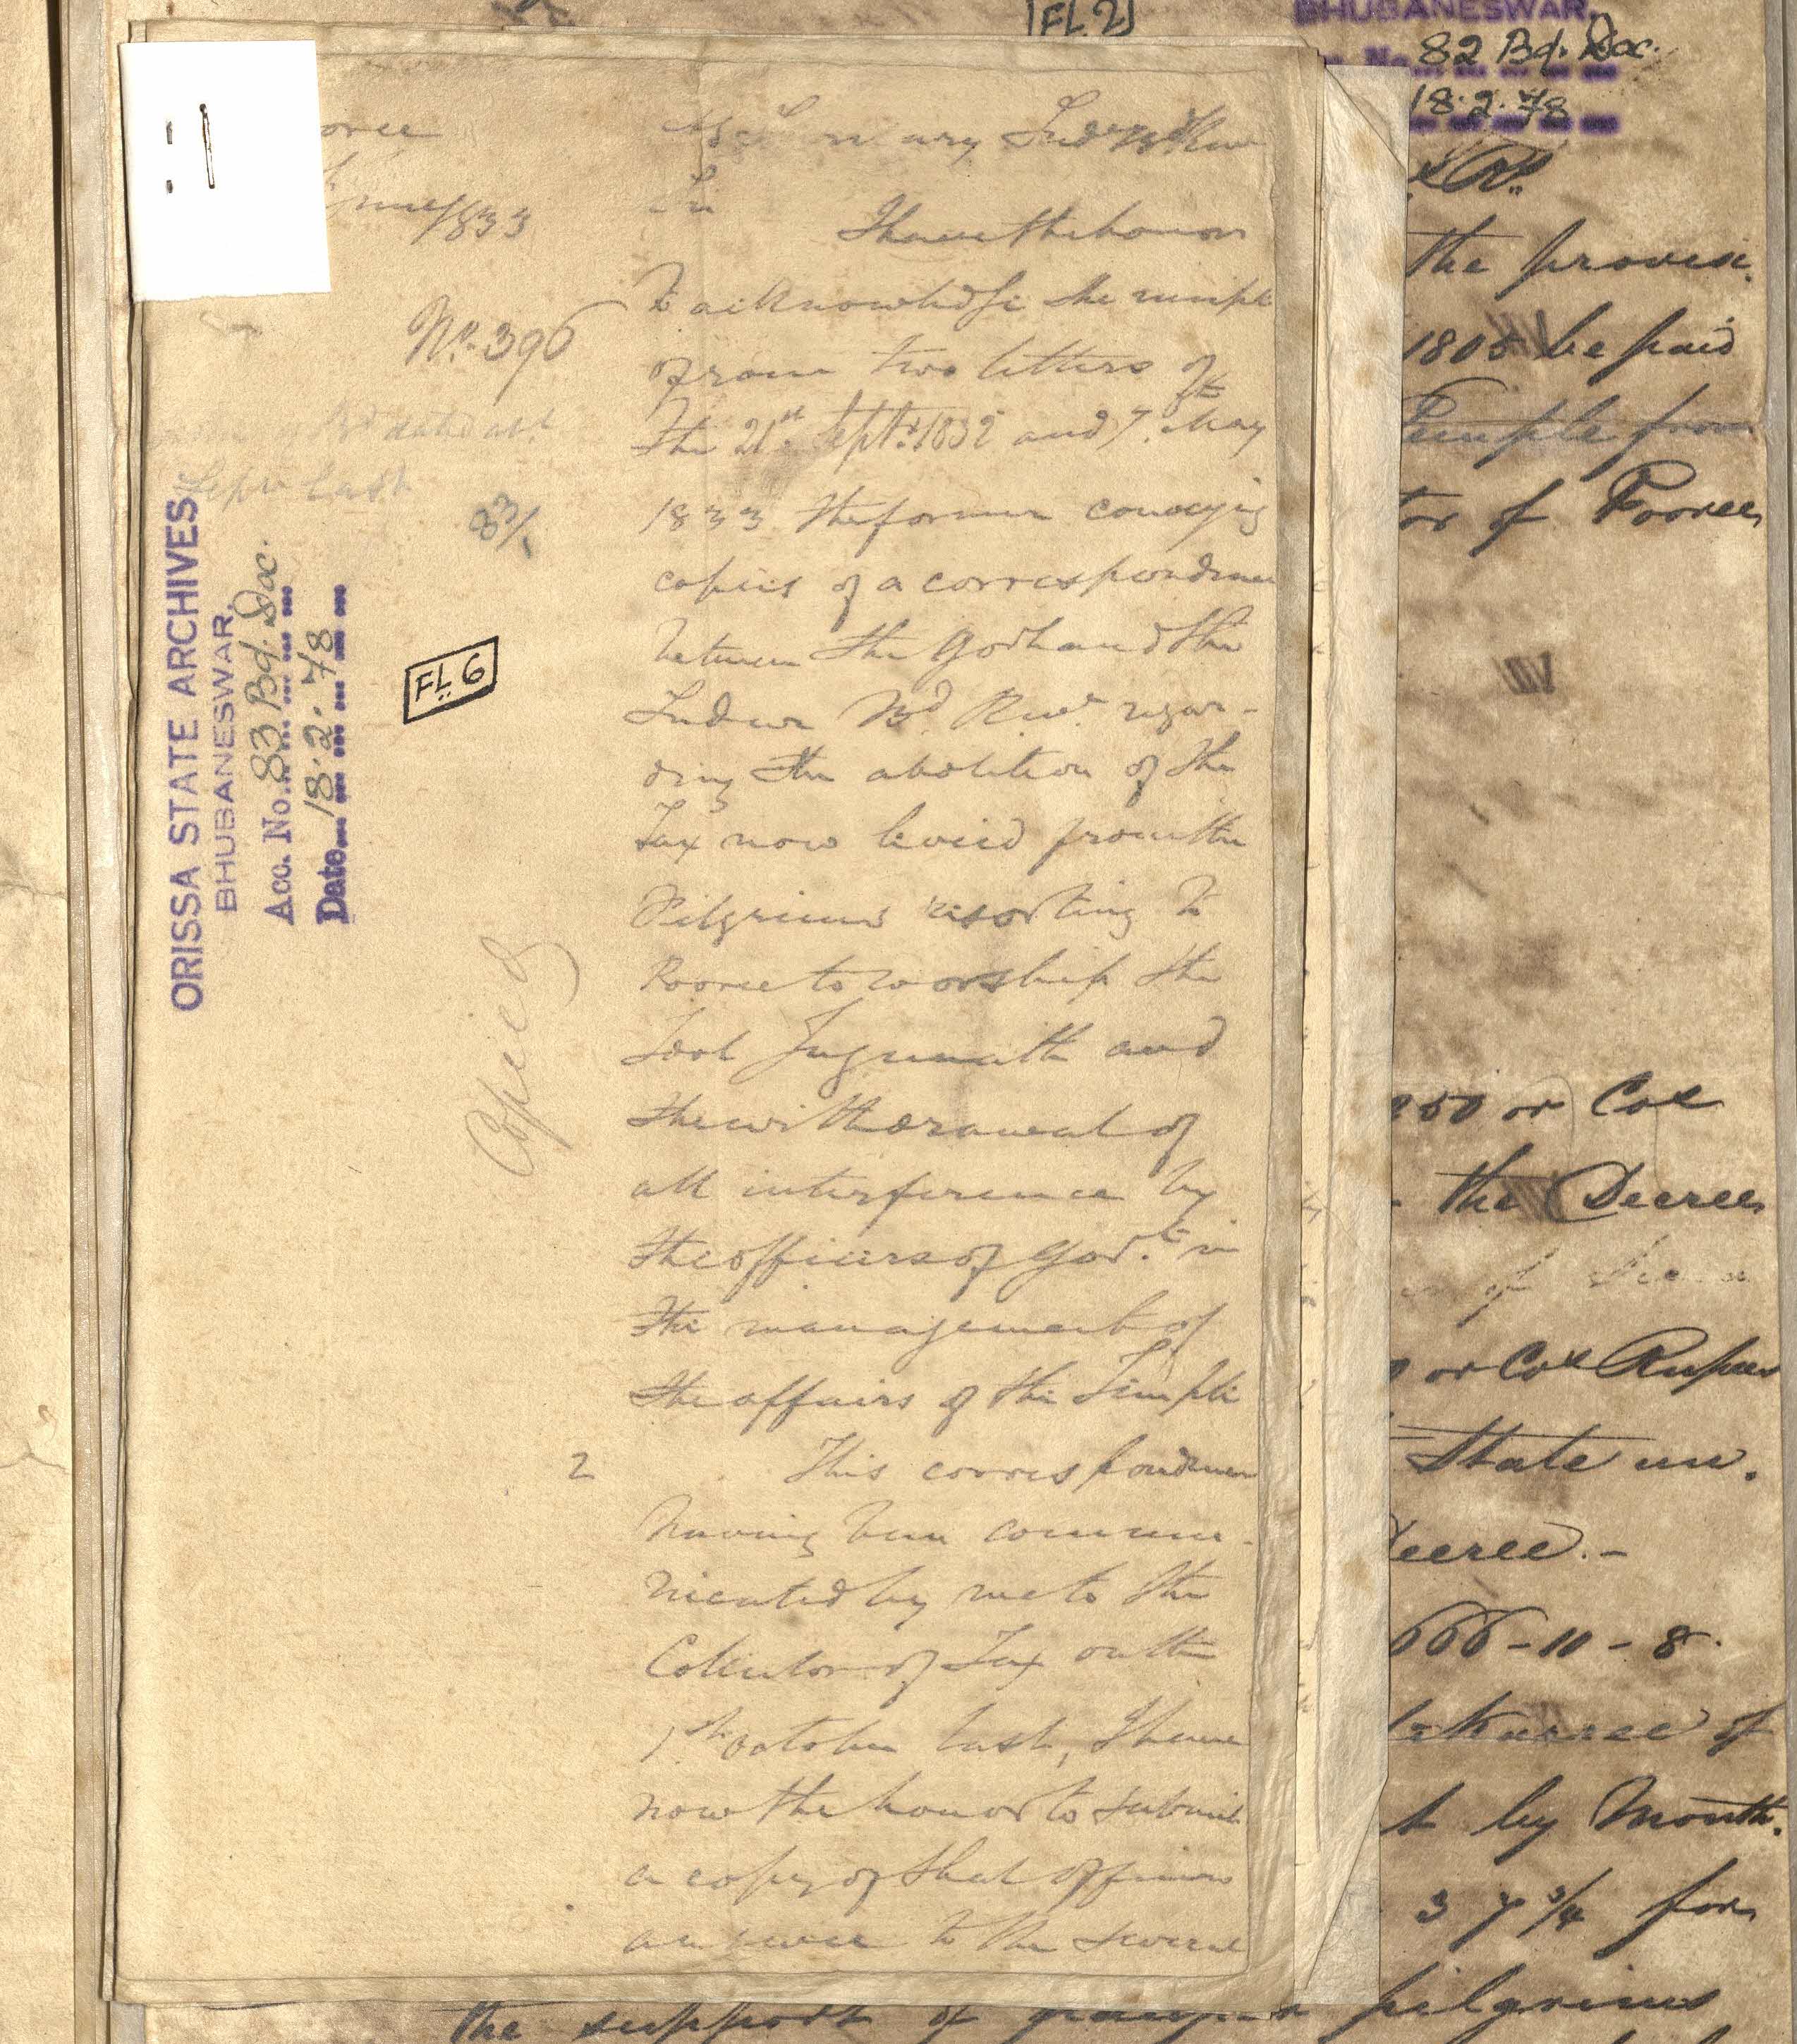 FL 2
BHUBANESWAR.
No. 82 Bd. Doc.
18.2.78
oree
June 1833
No. 396
dated
Septr last
83/
ORISSA STATE ARCHIVES
BHUBANESWAR.
Acc. No. 83 Bd. Doc.
Date 18.2.78
FL 6
Copied
Sir
I have the honor
to acknowledge the receipt
of your two letters of
the 21st Septr. 1832 and 7th. May
1833 the former conveying
copies of a correspondence
between the Govt and the
Sudder Bd Revr. regar-
ding the abolition of the
Tax now levied from the
Pilgrims resorting to
Pooree to worship the
Idol Jugunnath and
the withdrawal of
all interference by
the officers of Govt. in
the management of
the affairs of the Temple
2 This correspondence
having been commu-
nicated by me to the
Collector of Tax on the
1st October last, I have
now the honor to submit
a copy of that officers
answer to the several
the provisi.
1805 be paid
Temple from
tor of Pooree
250 or Cos
the Decree
or Cos Rupees
State un.
Decree.-
666-11-8.
of
t by Month.
3 7 3/4 for
the support of pilgrims